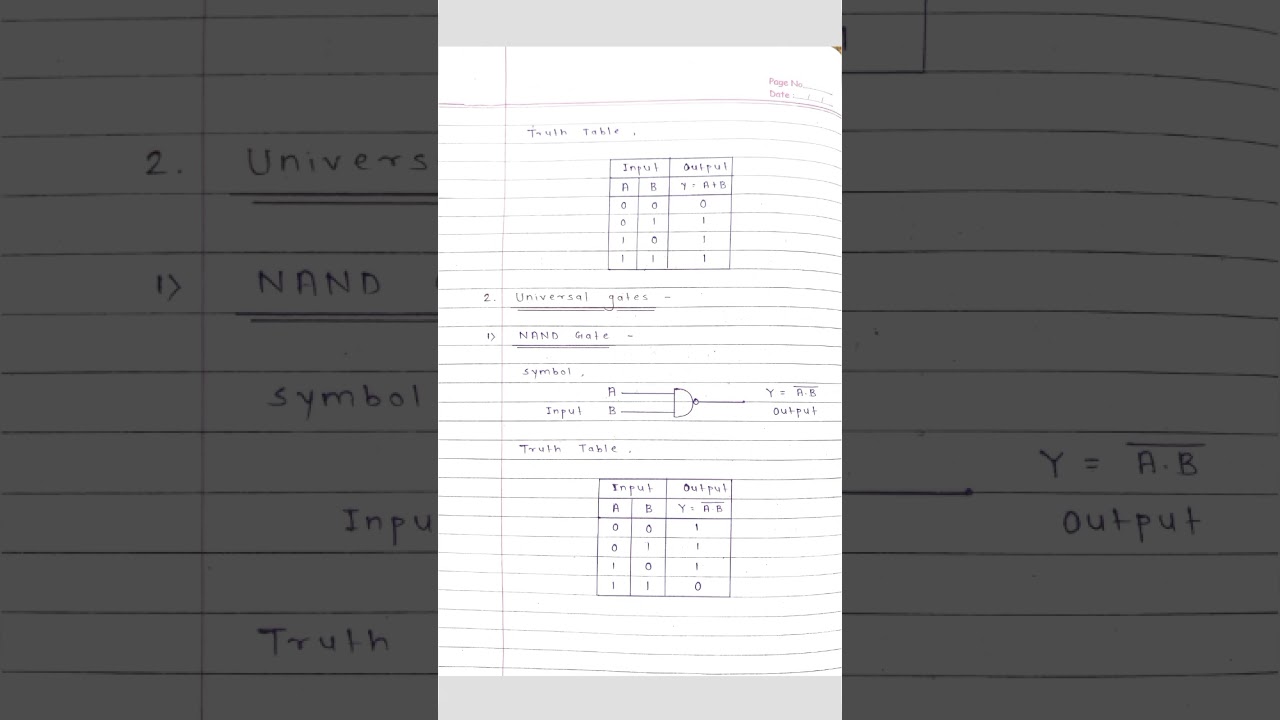 Page No.
Date : / /
Truth Table.
Input Output
A B Y = A+B
0 0 0
0 1 1
1 0 1
1 1 1
2. Universal gates -
1) NAND Gate -
Symbol.
A Y = \overline{A.B}
Input B Output
Truth Table.
Input Output
A B Y = \overline{A.B}
0 0 1
0 1 1
1 0 1
1 1 0
2. Univers
1) NAND
Symbol
Y = \overline{A.B}
Inpu Output
Truth